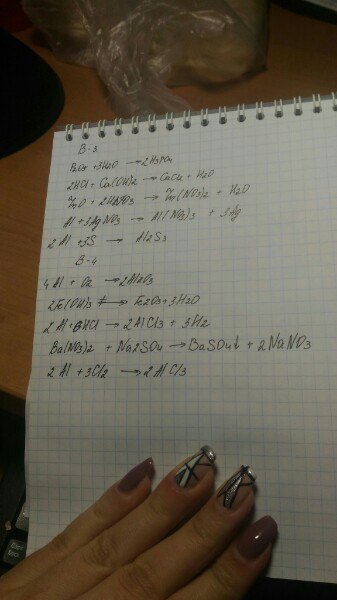 В-3
P2O5 + 3H2O → 2H3PO4
2HCl + Ca(OH)2 → CaCl2 + H2O
ZnO + 2HNO3 → Zn(NO3)2 + H2O
Al + 3AgNO3 → Al(NO3)3 + 3Ag
2Al + 3S → Al2S3
В-4
4Al + O2 → 2Al2O3
2Fe(OH)3 → Fe2O3 + 3H2O
2Al + 6HCl → 2AlCl3 + 3H2
Ba(NO3)2 + Na2SO4 → BaSO4↓ + 2NaNO3
2Al + 3Cl2 → 2AlCl3